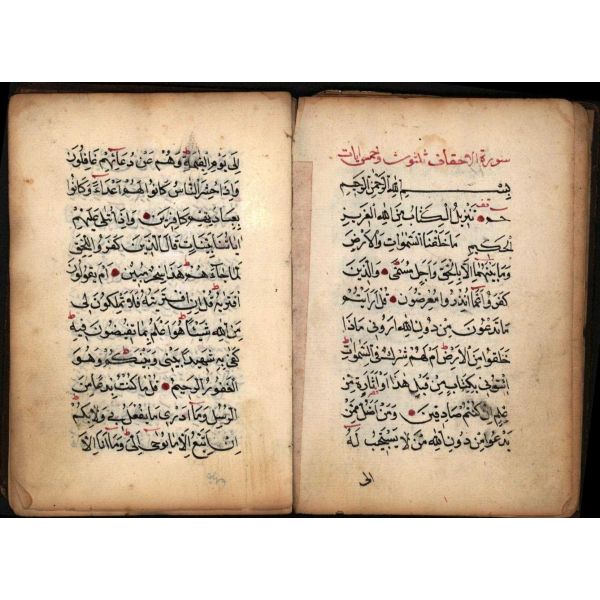 سورة الاحقاف ثلثون وخمس ايات
بسم الله الرحمن الرحيم
حم تنزيل الكتاب من الله العزيز
الحكيم ما خلقنا السموات والارض
وما بينهما الا بالحق واجل مسمى والذين
كفروا عما انذروا معرضون قل ارايتم
ما تدعون من دون الله اروني ماذا
خلقوا من الارض ام لهم شرك في السموات
ائتوني بكتاب من قبل هذا او اثارة من
علم ان كنتم صادقين ومن اضل ممن
يدعوا من دون الله من لا يستجيب له
الى
الى يوم القيمة وهم عن دعائهم غافلون
واذا حشر الناس كانوا لهم اعداء وكانوا
بعبادتهم كافرين واذا تتلى عليهم
اياتنا بينات قال الذين كفروا للحق
لما جاءهم هذا سحر مبين ام يقولون
افتريه قل ان افتريته فلا تملكون لي
من الله شيئا هو اعلم بما تفيضون فيه
كفى به شهيدا بيني وبينكم وهو
الغفور الرحيم قل ما كنت بدعا من
الرسل وما ادري ما يفعل بي ولا بكم
ان اتبع الا ما يوحى الي وما انا الا